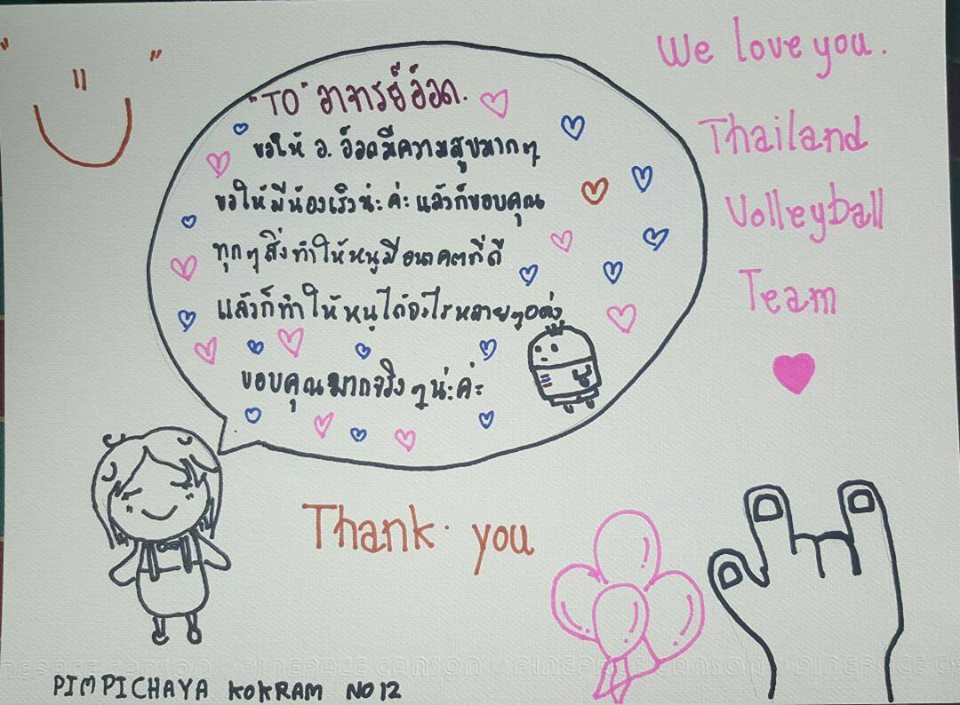 "TO" อาจารย์อ๊อด.
ขอให้ อ. อ๊อดมีความสุขมากๆ
ขอให้มีน้องเร็วน่ะค่ะ แล้วก็ขอบคุณ
ทุกๆสิ่งทำให้หนูมีอนาคตที่ดี
แล้วก็ทำให้หนูได้อะไรหลายๆอย่าง
ขอบคุณมากจริงๆน่ะค่ะ
We love you.
Thailand
Volleyball
Team
Thank you
PIMPICHAYA KOKRAM NO 12